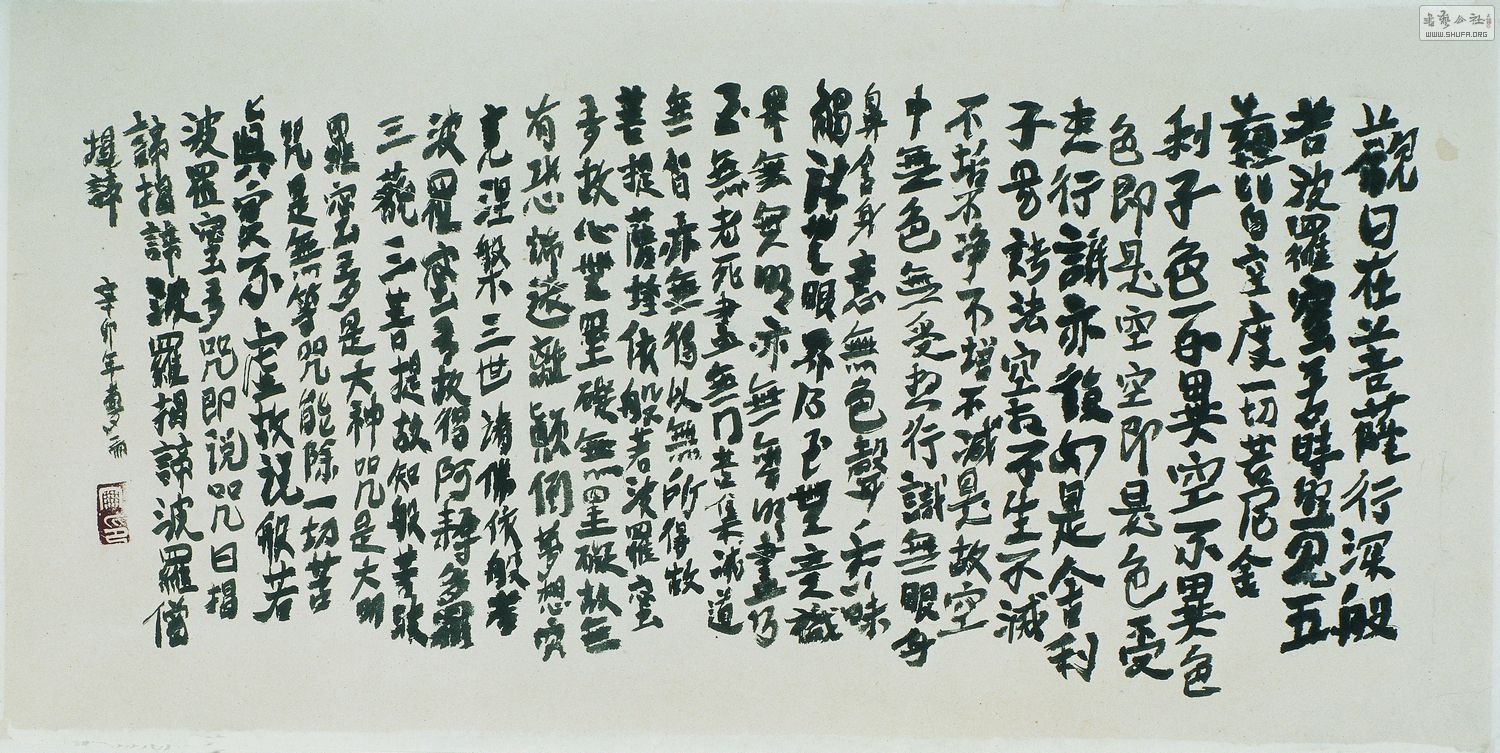 觀自在菩薩行深般
若波羅蜜多時照見五
蘊皆空度一切苦厄舍
利子色不異空不異色
色即是空空即是色受
想行識亦復如是舍利
子是諸法空相不生不滅
不垢不淨不增不減是故空
中無色無受想行識無眼耳
鼻舌身意無色聲香味
觸法無眼界乃至無意識
界無無明亦無無明盡乃
至無老死盡無苦集滅道
無智亦無得以無所得故
菩提薩埵依般若波羅蜜
多故心無罣礙無罣礙故無
有恐怖遠離顛倒夢想究
竟涅槃三世諸佛依般若
波羅蜜多故得阿耨多羅
三藐三菩提故知般若波
羅蜜多是大神咒是大明
咒是無等咒能除一切苦
真實不虛故説般若
波羅蜜多咒即说咒曰揭
諦揭諦波羅揭諦波羅僧
揭諦
辛卯年
書藝公社
WWW.SHUFA.ORG